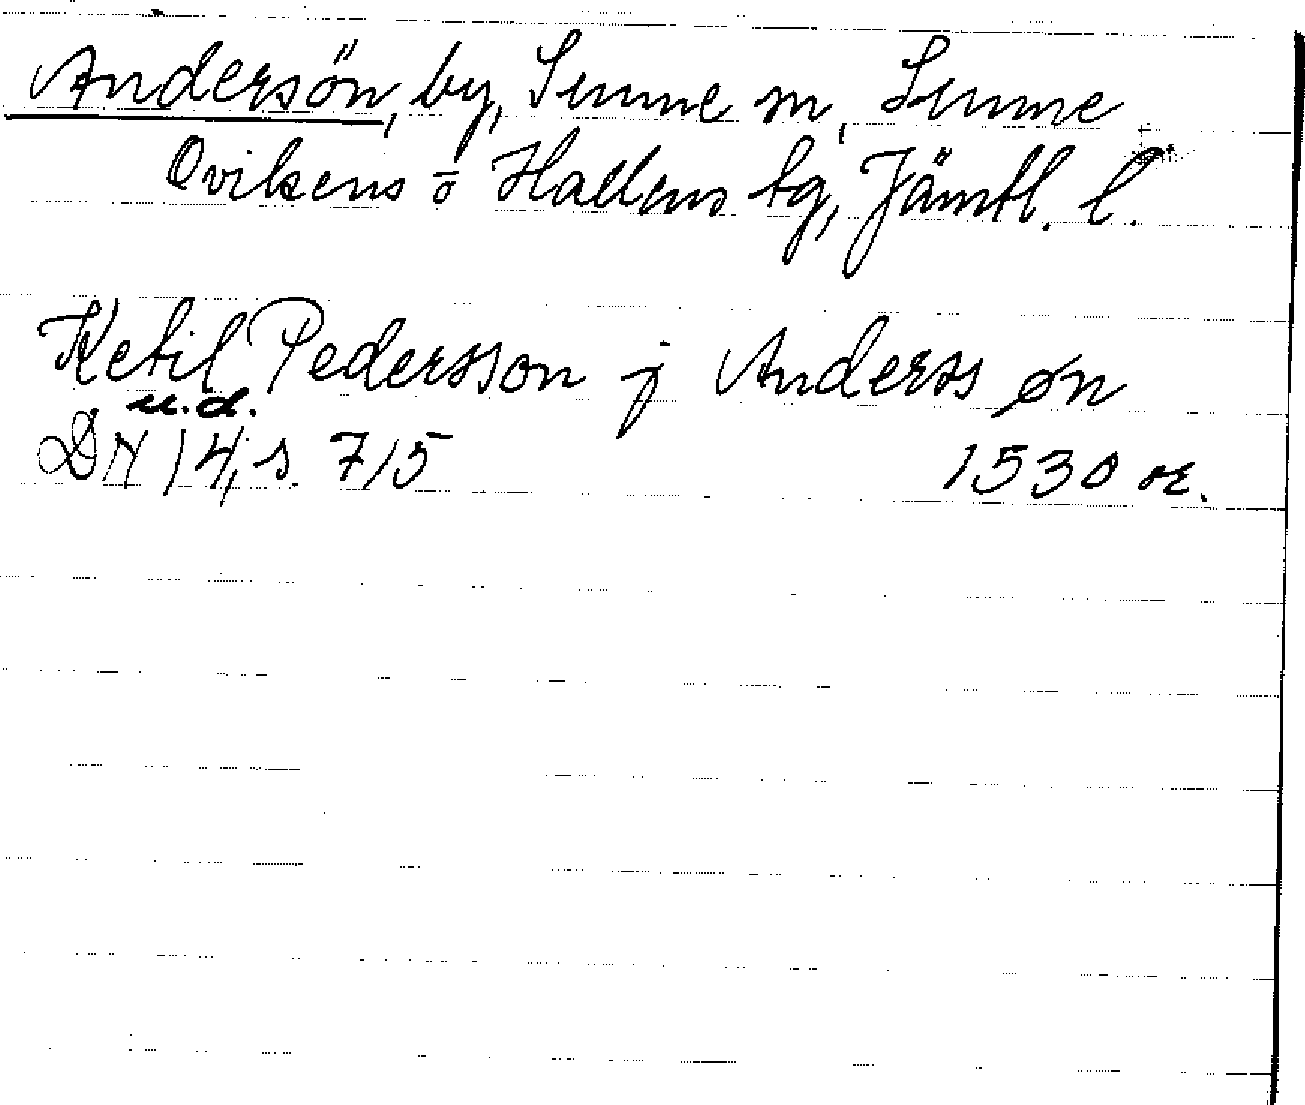 Andersön, by, Sunne sn, Sunne
Ovikens o Hallens tg, Jämtl. l.
Ketil Pedersson j Anderss øn
u.d.
DN 14, s 715 1530 or.